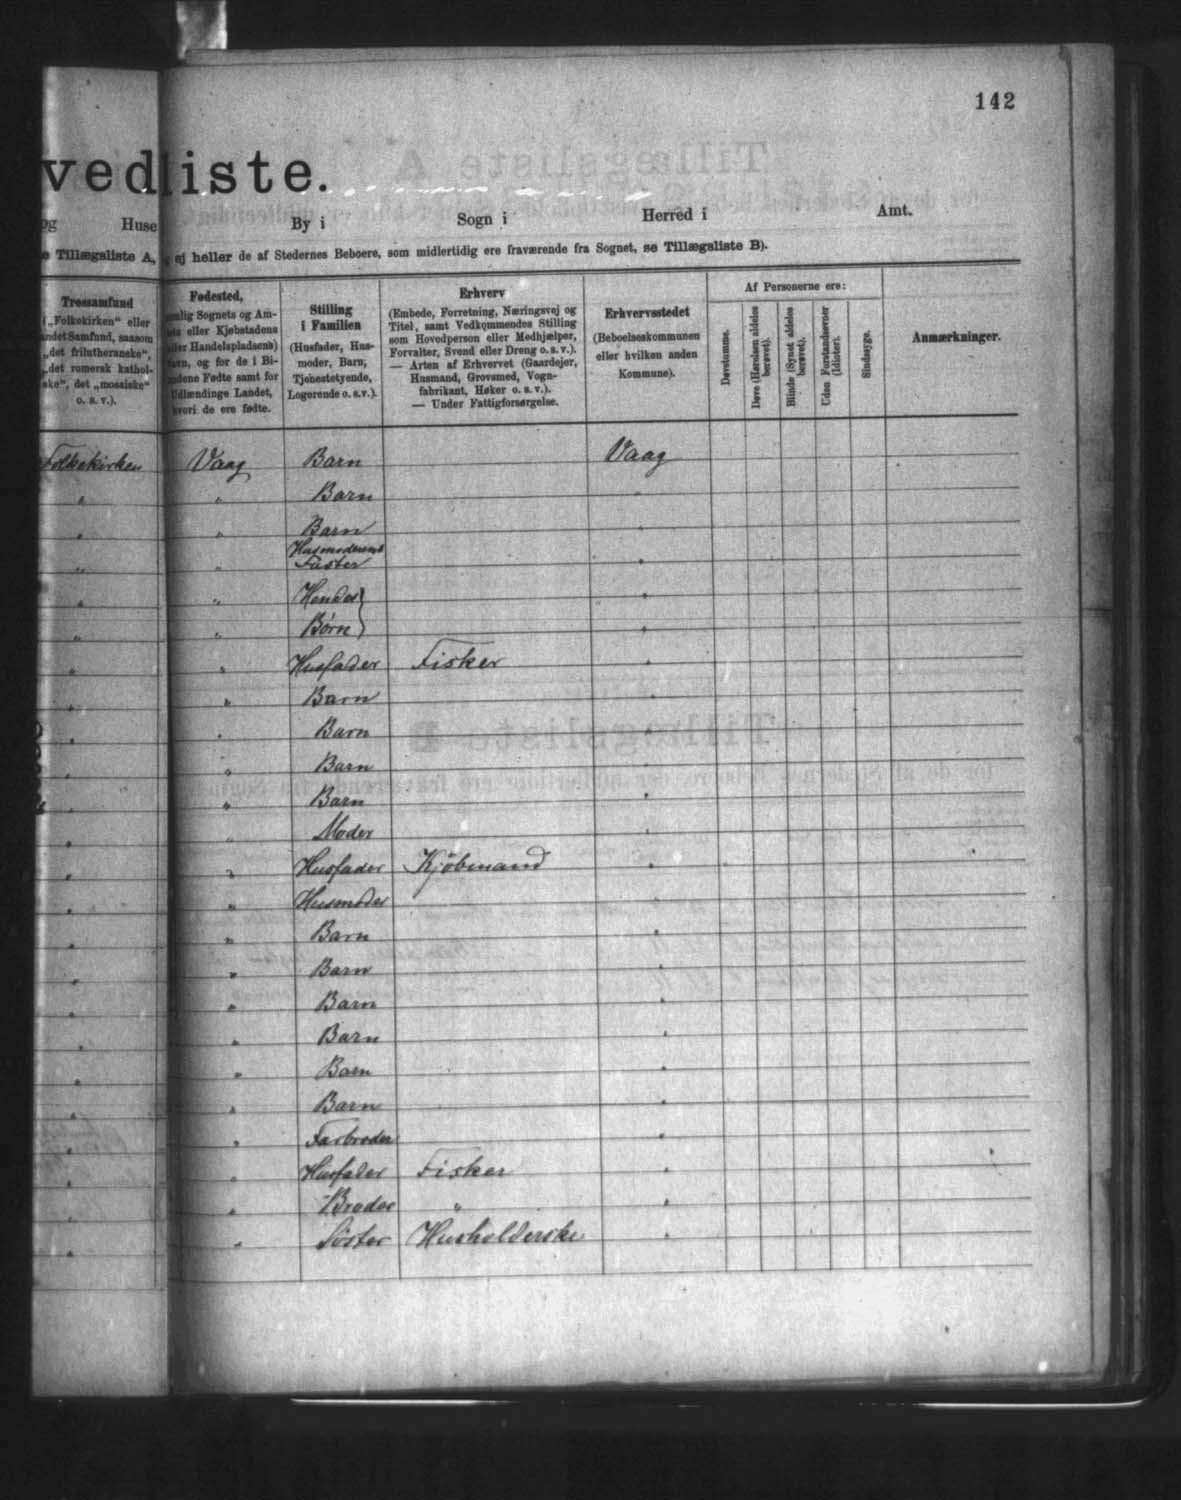 142
vedliste.
og Huse By i Sogn i Herred i Amt.
e Tillægsliste A, ej heller de af Stedernes Beboere, som midlertidig ere fraværende fra Sognet, se Tillægsliste B).
Trossamfund
(„Folkekirken“ eller
andet Samfund, saasom
„det frilutheranske“,
„det romersk kathol-
ske“, det „mosaiske“
o. s. v.).
Fødested,
nemlig Sognets og Am-
ets eller Kjøbstadens
eller Handelspladsens)
Navn, og for de i Bi-
landene Fødte samt for
Udlændinge Landet,
hvori de ere fødte.
Stilling
i Familien
(Husfader, Hus-
moder, Barn,
Tjenestetyende,
Logerende o. s.v.).
Erhverv
(Embede, Forretning, Næringsvej og
Titel, samt Vedkommendes Stilling
som Hovedperson eller Medhjælper,
Forvalter, Svend eller Dreng o. s. v.).
— Arten af Erhvervet (Gaardejer,
Husmand, Grovsmed, Vogn-
fabrikant, Høker o. s. v.).
— Under Fattigforsørgelse.
Erhvervsstedet
(Beboelseskommunen
eller hvilken anden
Kommune).
Af Personerne ere:
Døvstumme.
Døve (Hørelsen aldeles
berøvet).
Blinde (Synet aldeles
berøvet).
Uden Forstandsevner
(Idioter).
Sindssyge.
Anmærkninger.
Folkekirken Vaag Barn Vaag
" " Barn "
" " Barn "
Husmoderens
" " Faster "
" " Hendes "
" " Børn "
" " Husfader Fisker "
" " Barn "
" " Barn "
" " Barn "
" " Barn "
" " Moder "
" " Husfader Kjöbmand "
" " Husmoder
" " Barn "
" " Barn "
" " Barn "
" " Barn "
" " Barn "
" " Barn "
" " Farbroder "
" " Husfader Fisker "
" " Broder " "
" " Söster Husholderske "